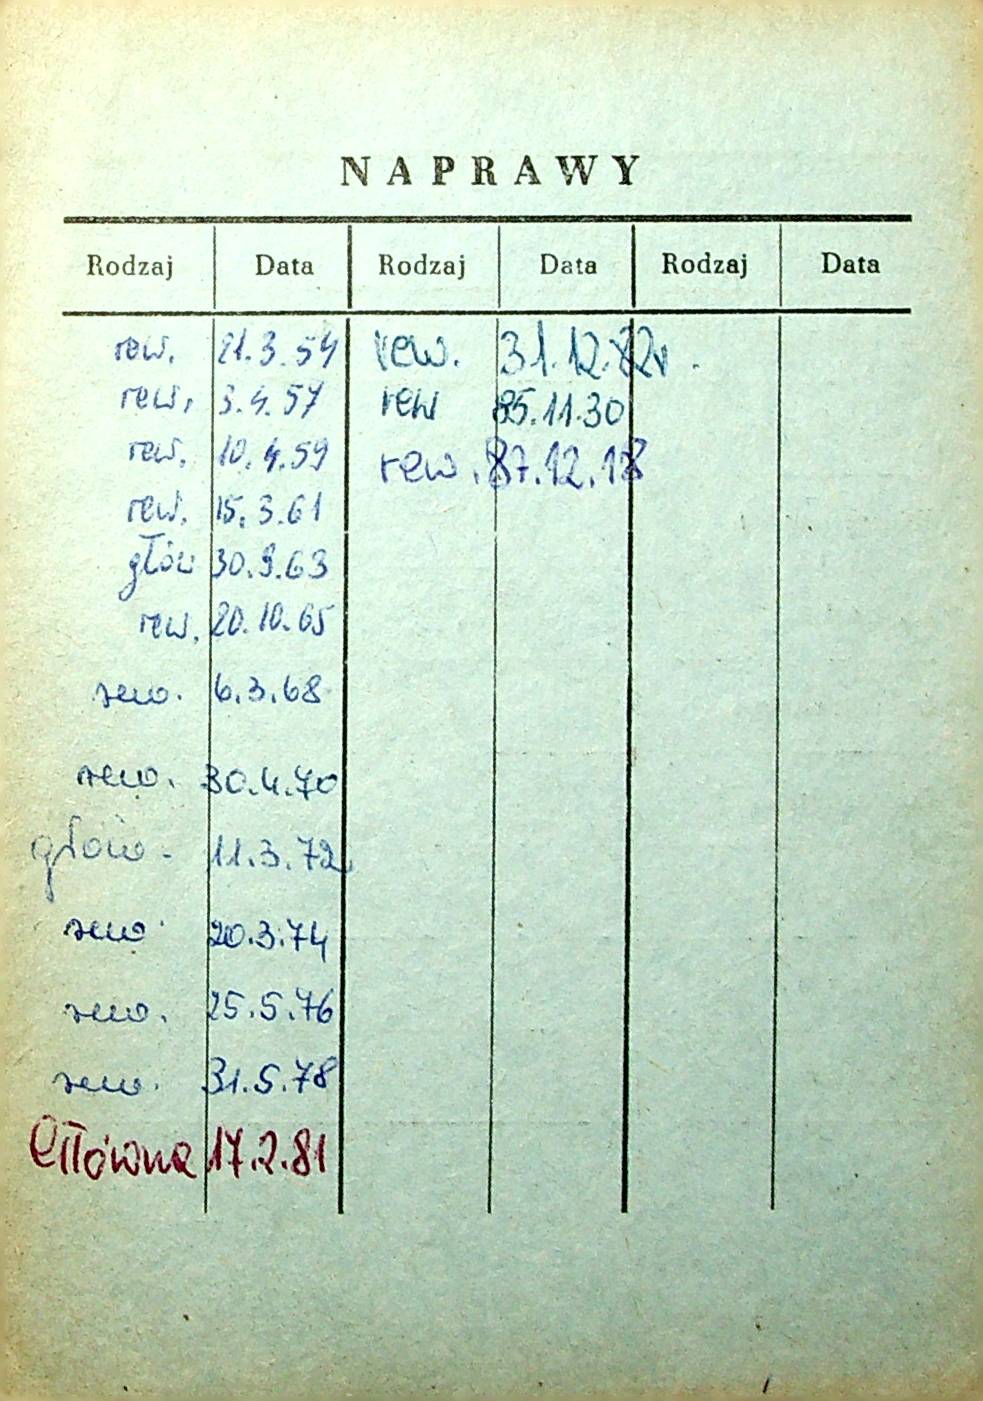 NAPRAWY
Rodzaj Data Rodzaj Data Rodzaj Data
rew. 21.3.54 rew. 31.12.82r.
rew. 3.4.57 rew 85.11.30
rew. 10.4.59 rew. 87.12.18
rew. 15.3.61
głów 30.9.63
rew. 20.10.65
rew. 6.3.68
rew. 30.4.70
głów. 11.3.72
rew. 20.3.74
rew. 25.5.76
rew. 31.5.78
Główna 17.2.81